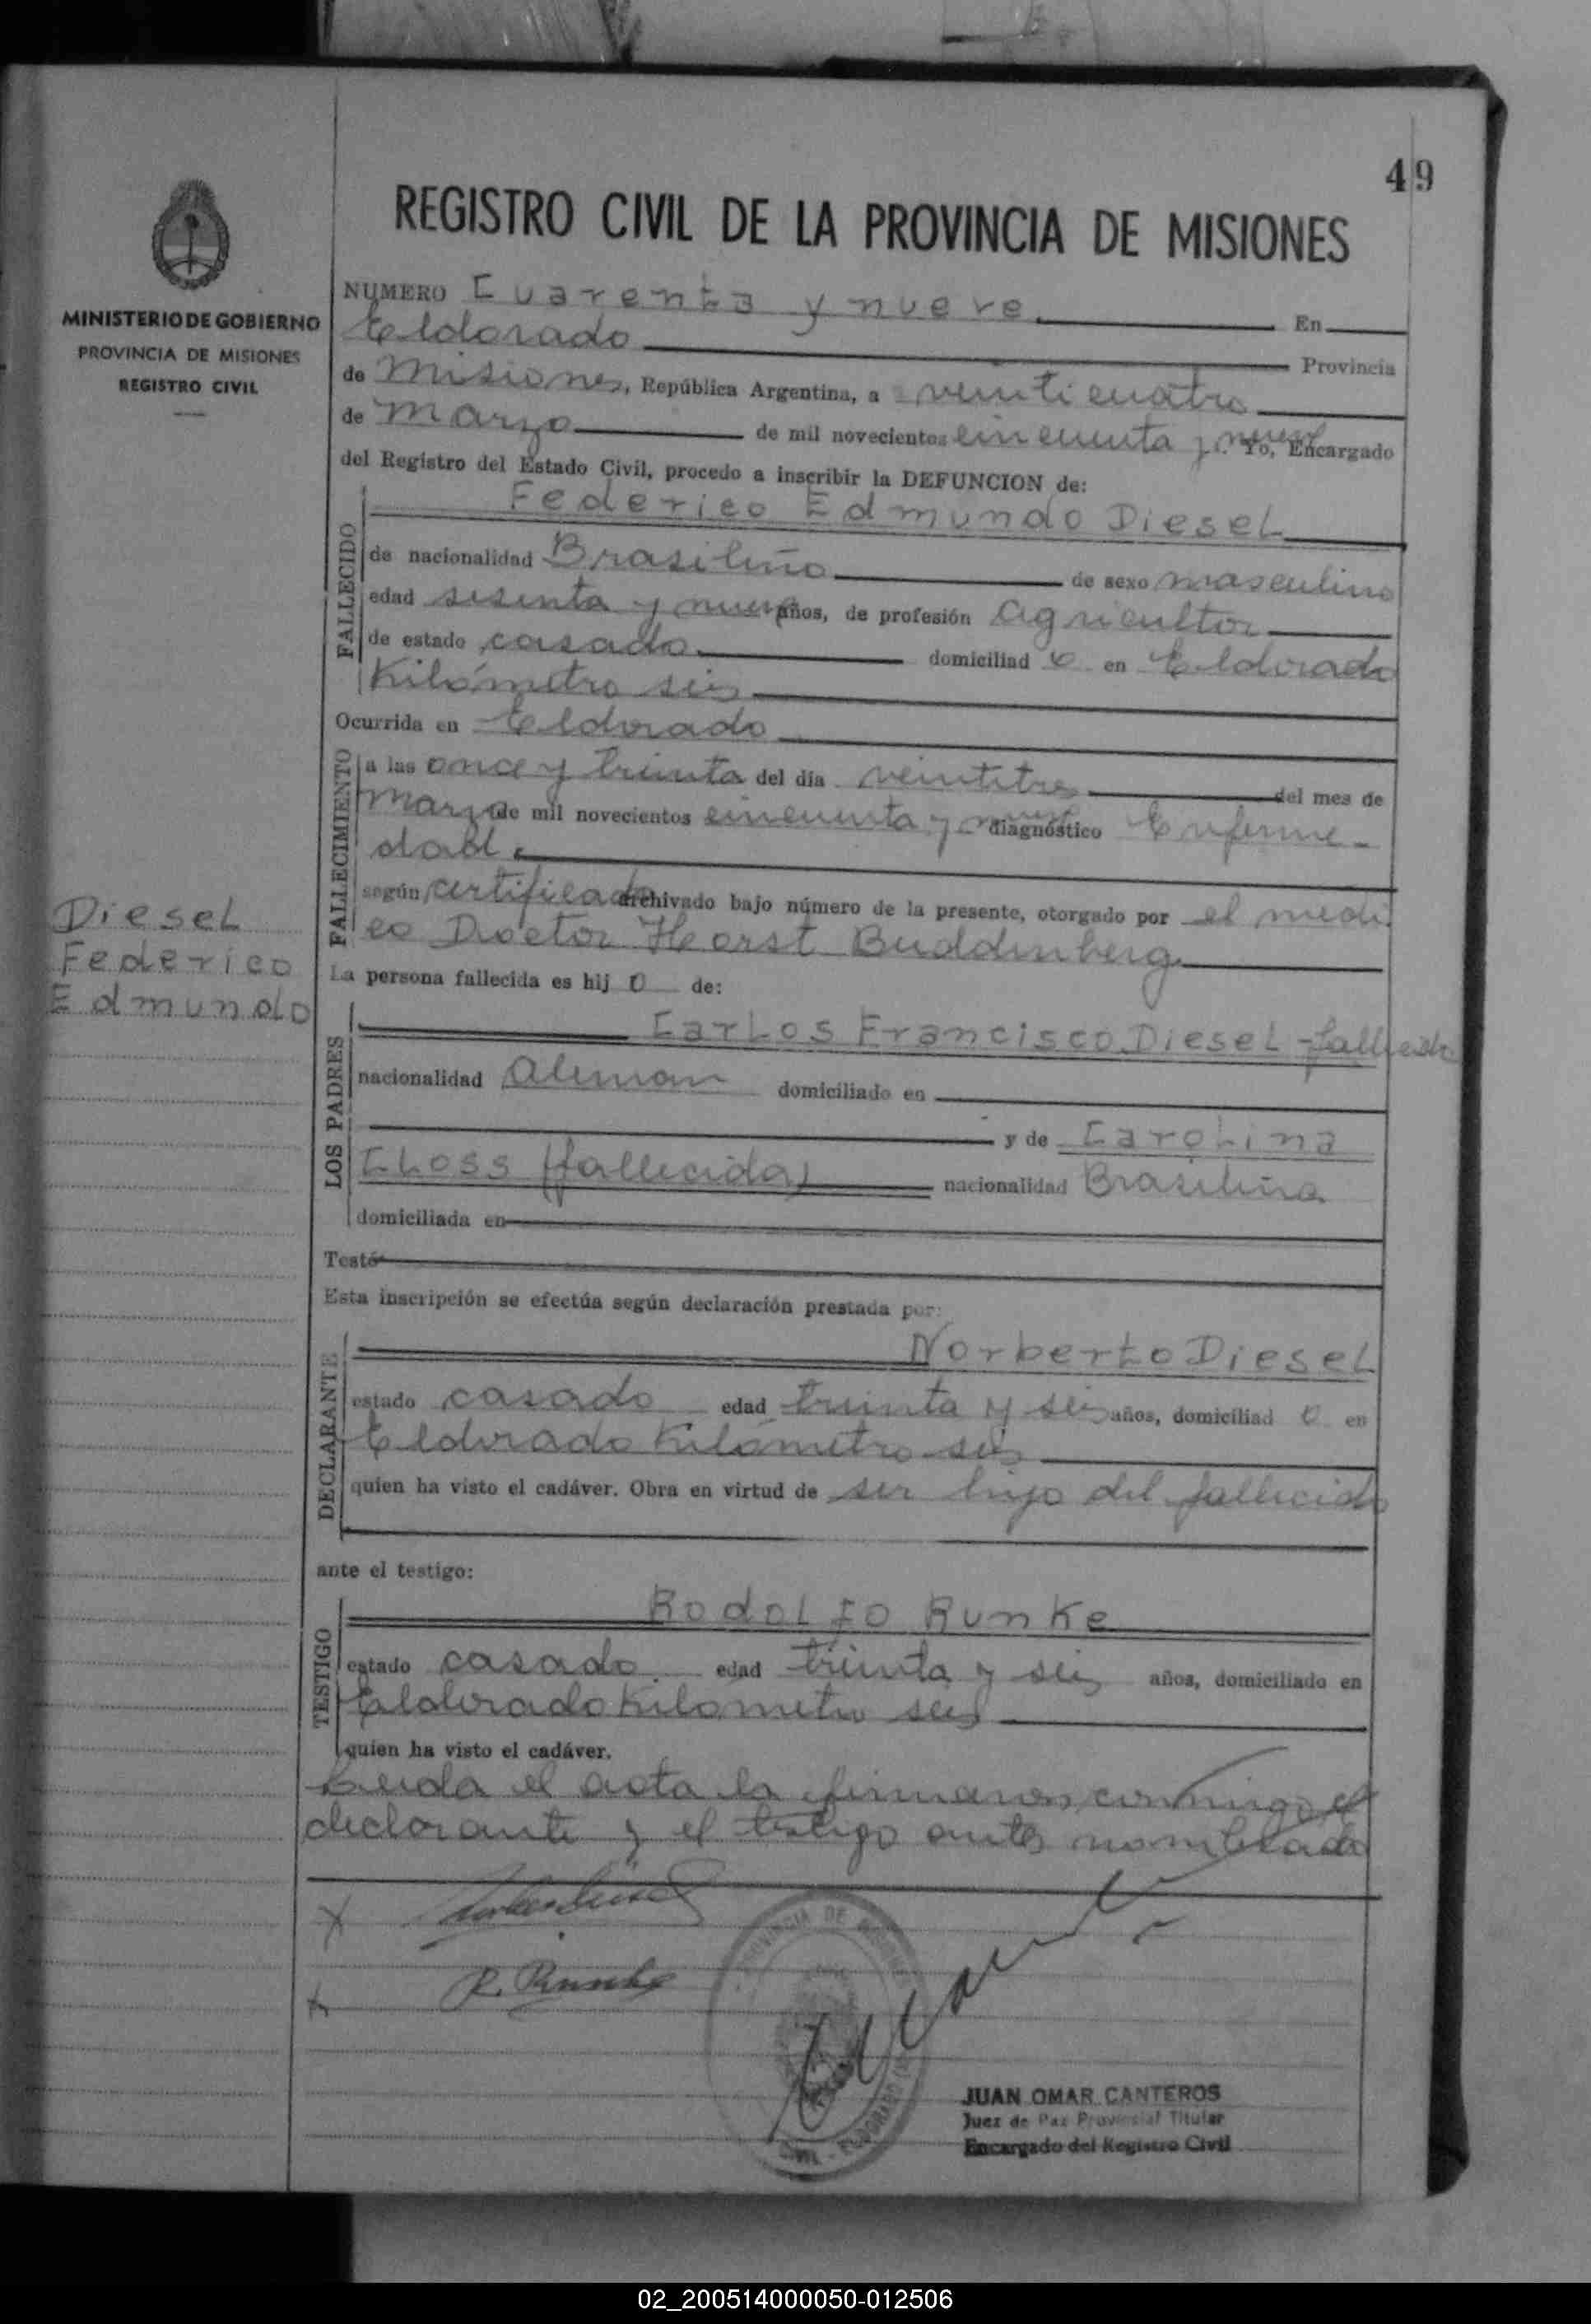 49
REGISTRO CIVIL DE LA PROVINCIA DE MISIONES
MINISTERIO DE GOBIERNO
PROVINCIA DE MISIONES
REGISTRO CIVIL
NUMERO Cuarenta y nueve En
Eldorado Provincia
de Misiones, República Argentina, a veinticuatro
de Marzo de mil novecientos cincuenta y nueve. Yo, Encargado
del Registro del Estado Civil, procedo a inscribir la DEFUNCION de:
FALLECIDO
Federico Edmundo Diesel
de nacionalidad Brasileño de sexo masculino
edad sesenta y nueve años, de profesión agricultor
de estado casado domiciliad o en Eldorado
Kilómetro seis
Ocurrida en Eldorado
FALLECIMIENTO
a las once y treinta del día veintitres del mes de
Marzo de mil novecientos cincuenta y nueve diagnóstico Enferme-
dad.
según certificado archivado bajo número de la presente, otorgado por el medi
co Doctor Horst Buddenberg
Diesel
Federico
Edmundo
La persona fallecida es hij o de:
LOS PADRES
Carlos Francisco Diesel - fallecido
nacionalidad Aleman domiciliado en
y de Carolina
Closs (fallecida) nacionalidad Brasileña
domiciliada en
Testó
Esta inscripción se efectúa según declaración prestada por:
DECLARANTE
Norberto Diesel
estado casado edad treinta y seis años, domiciliad o en
Eldorado Kilómetro seis
quien ha visto el cadáver. Obra en virtud de ser hijo del fallecido
ante el testigo:
TESTIGO
Rodolfo Runke
estado casado edad treinta y seis años, domiciliado en
Eldorado Kilometro seis
quien ha visto el cadáver.
Leida el acta la firmaron conmigo el
declarante y el testigo antes nombrado
R. Runke
PROVINCIA DE MISIONES
CIVIL - ELDORADO
JUAN OMAR CANTEROS
Juez de Paz Provincial Titular
Encargado del Registro Civil
02_200514000050-012506